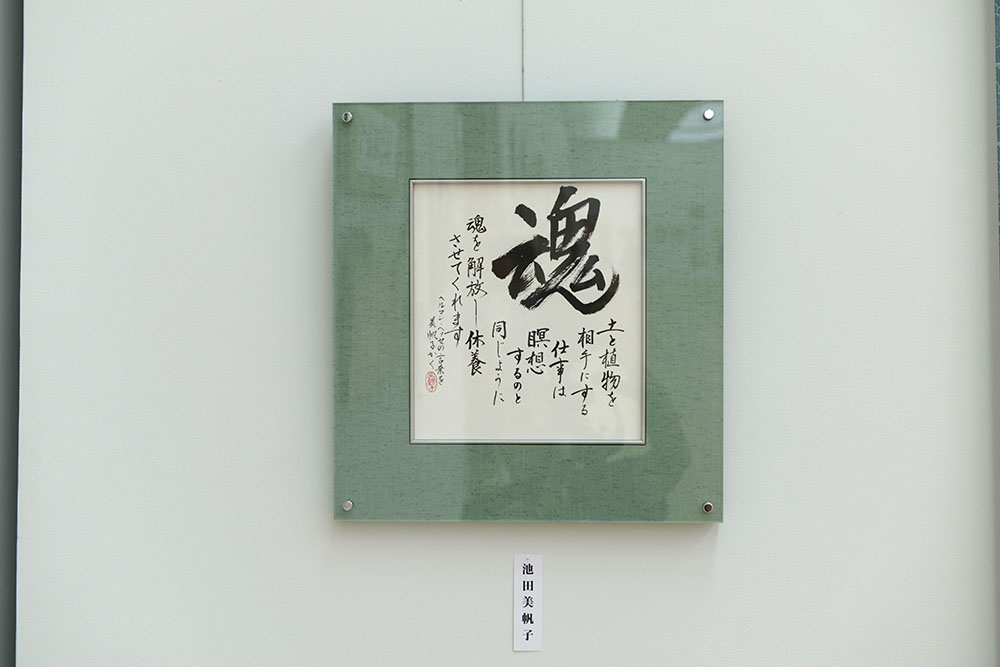 魂
土と植物を
相手にする
仕事は
瞑想
するのと
同じように
魂を解放し休養
させてくれます
ヘルマン・ヘッセの言葉を
美帆子かく
池田美帆子